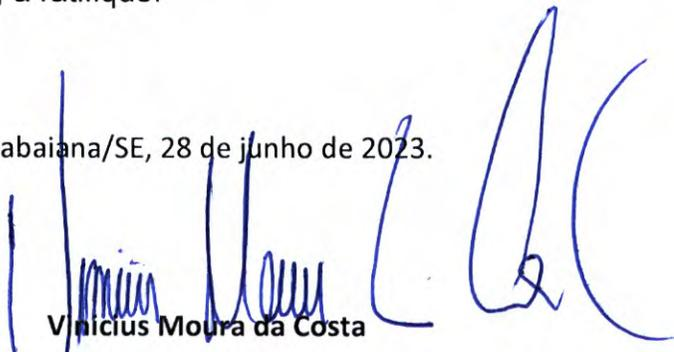 abaiana/SE, 28 de junho de 2023.
Vinicius Moura da Costa